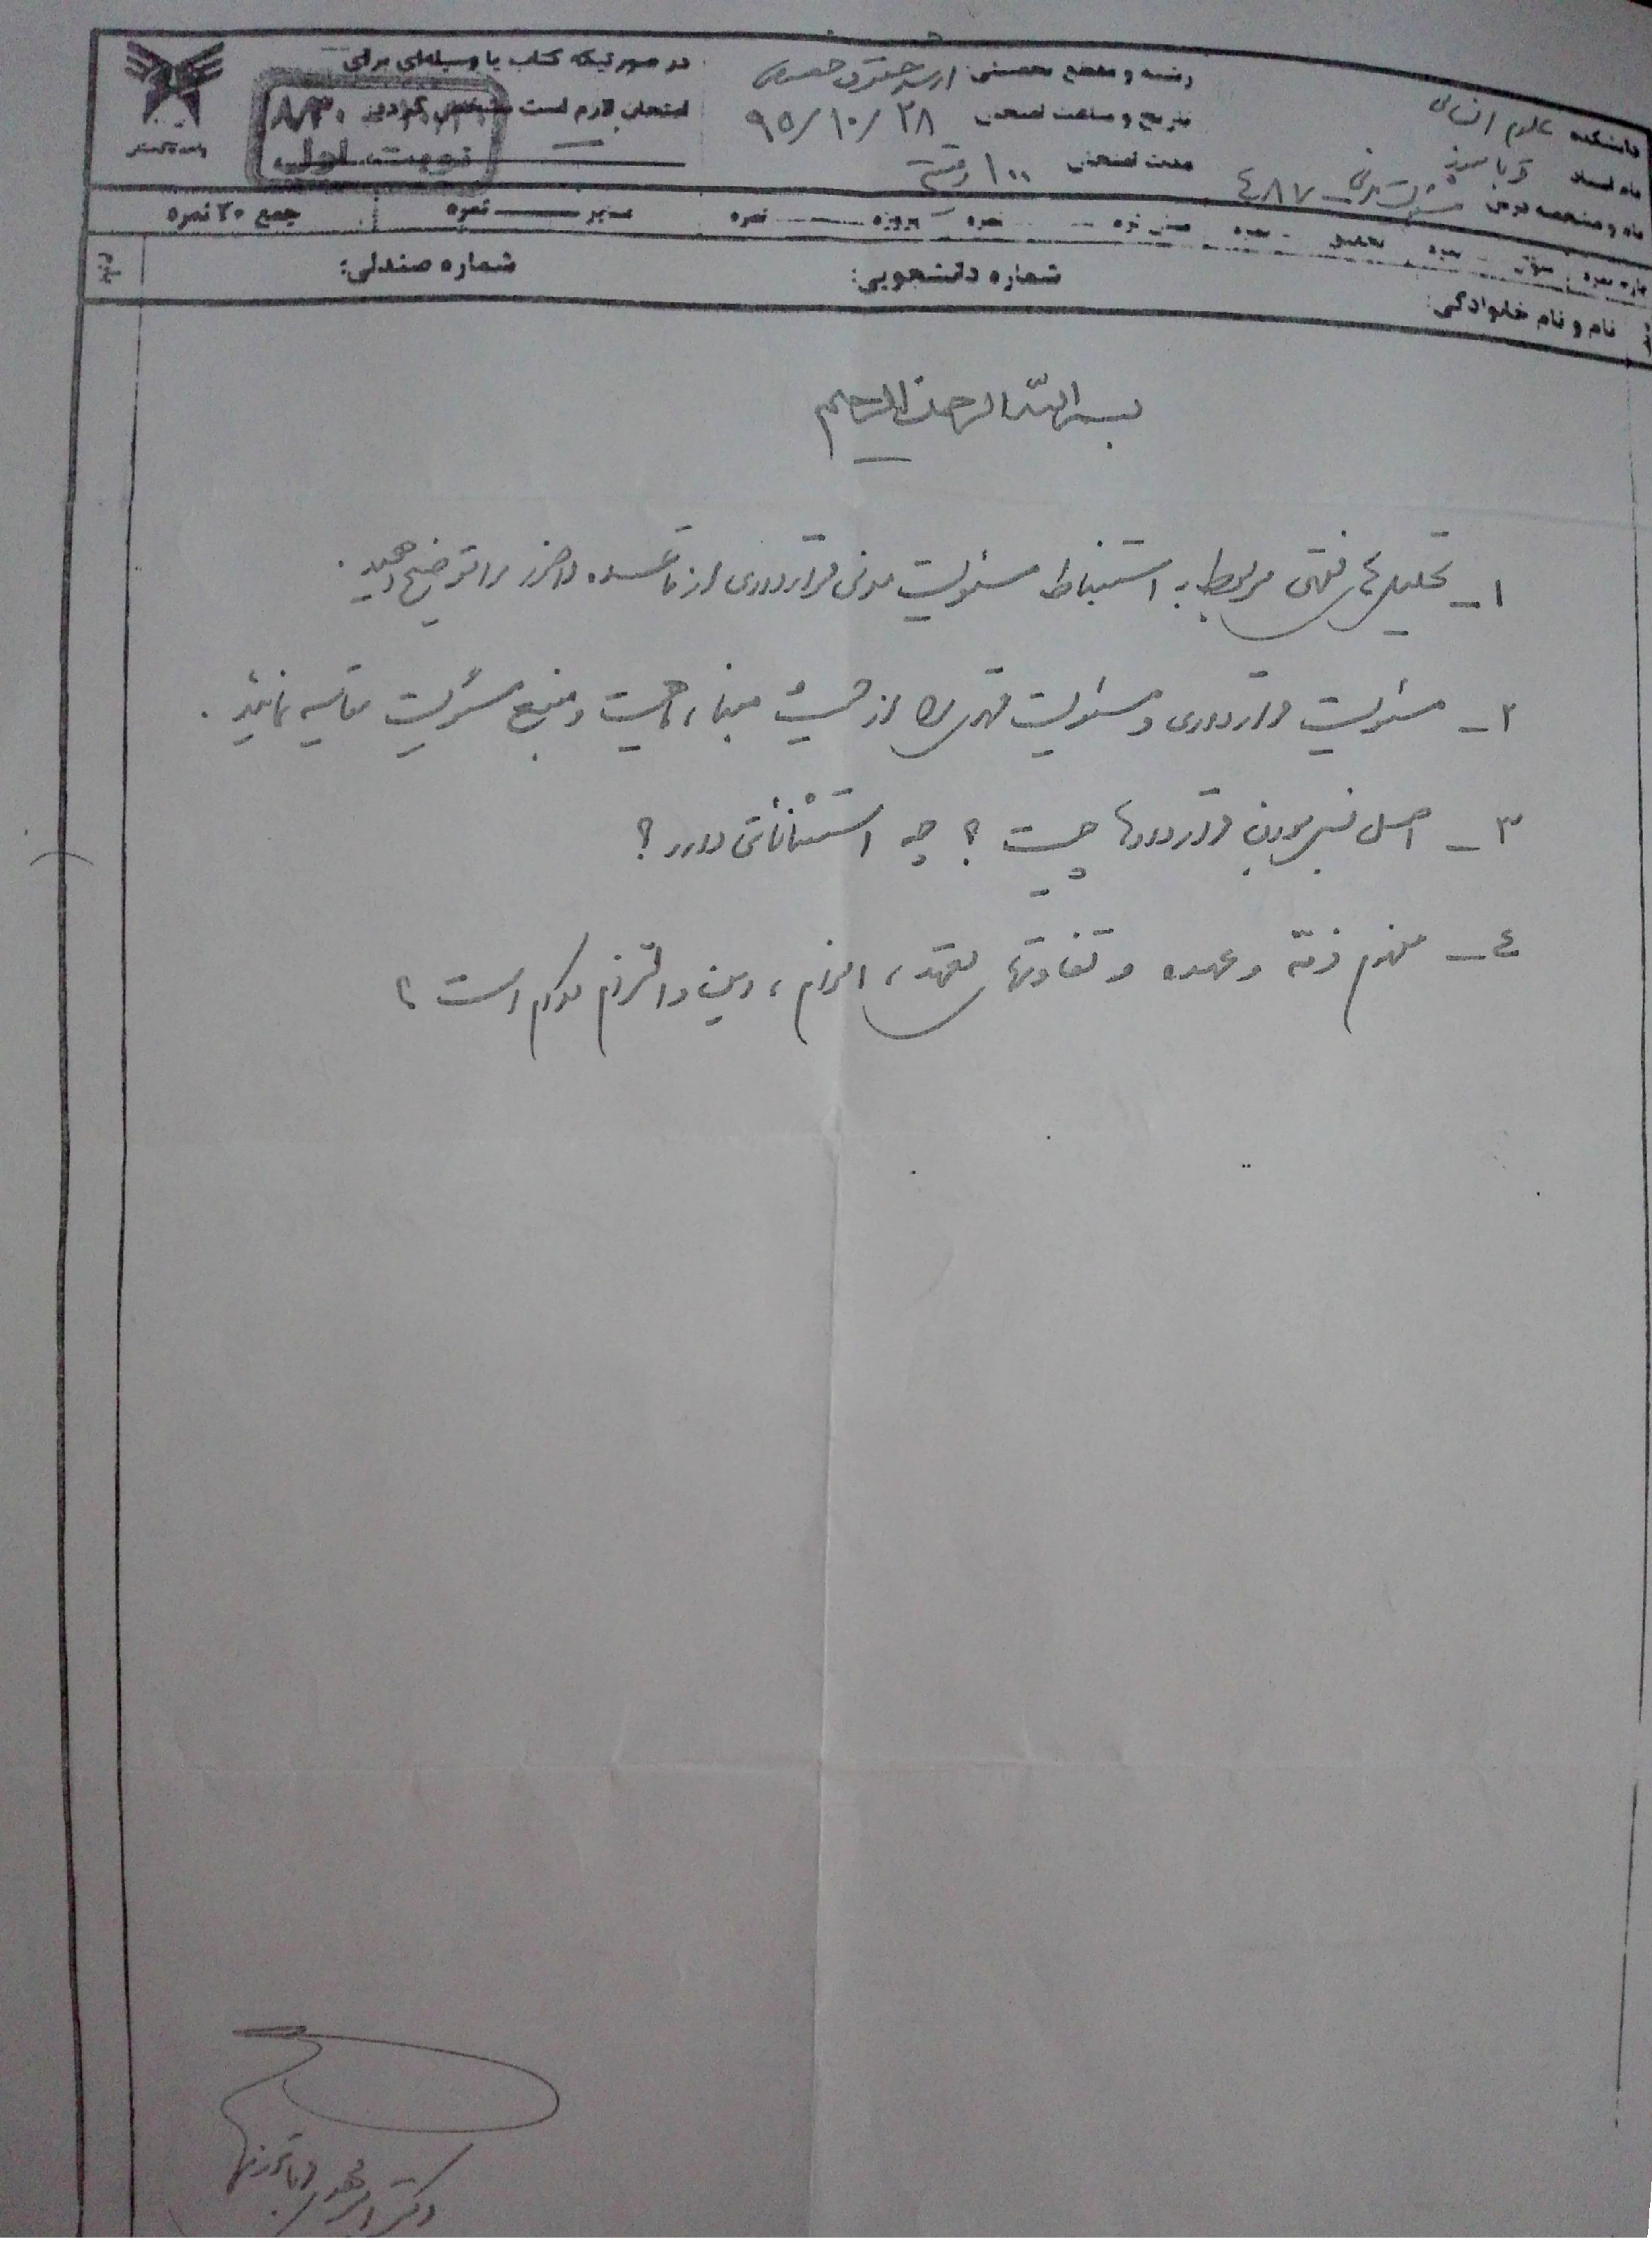 دانشکده علوم انسانی
نام استاد
نام و مشخصه درس مسئولیت مدنی ۴۸۷
رشته و مقطع تحصیلی: ارشد حقوق خصوصی
تاریخ و ساعت امتحان ۹۵/۱۰/۲۸
مدت امتحان ۱۰۰ دقیقه
در صورتیکه کتاب یا وسیله‌ای برای
امتحان لازم است مشخص گردد
۸/۳۰
نوبت اول
نمره پروژه نمره نمره جمع ۲۰ نمره
نام و نام خانوادگی: شماره دانشجویی: شماره صندلی:
بسم الله الرحمن الرحیم
۱- تحلیل‌های فقهی مربوط به استنباط مسئولیت مدنی قراردادی از قاعده لاضرر را توضیح دهید.
۲- مسئولیت قراردادی و مسئولیت قهری را از حیث مبنا، ماهیت و منبع مسئولیت مقایسه نمائید.
۳- اصل نسبی بودن قراردادها چیست؟ چه استثنائاتی دارد؟
۴- مفهوم ذمّه و عهده و تفاوتهای تعهد، الزام، دین و التزام کدام است؟
دکتر